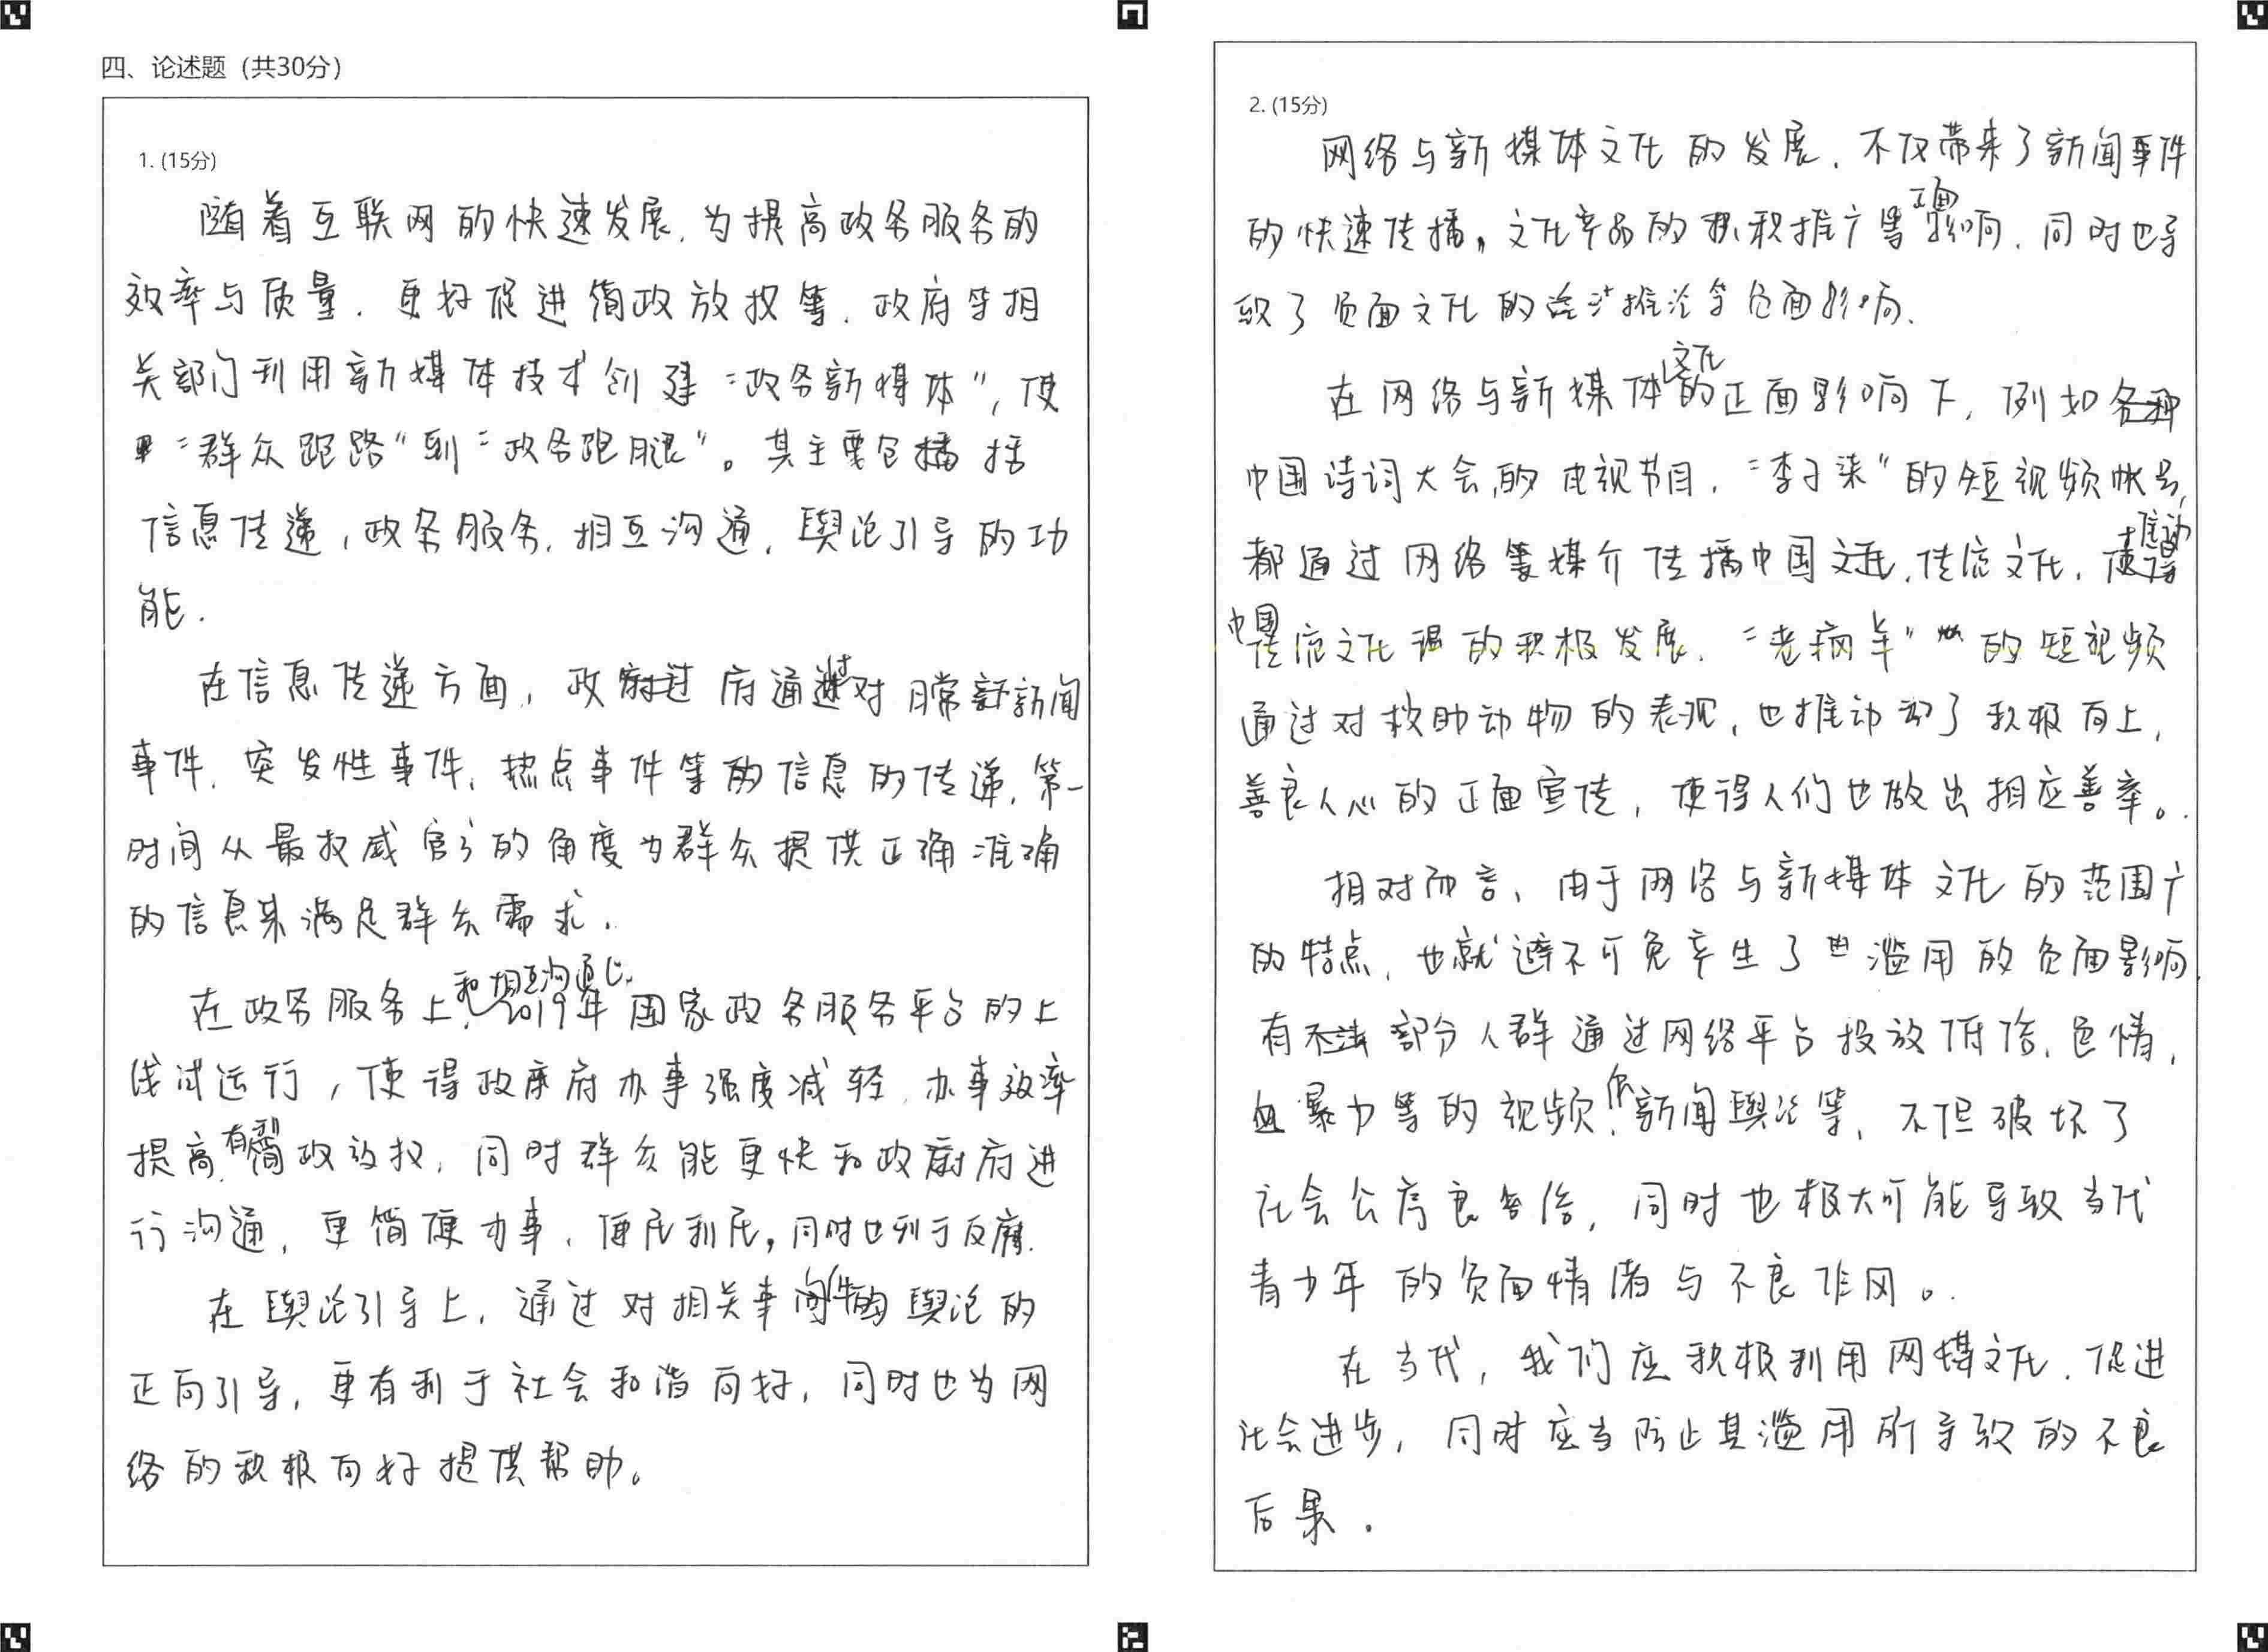 四、论述题（共30分）
1. (15分)
随着互联网的快速发展，为提高政务服务的
效率与质量，更好促进简政放权等，政府等相
关部门利用新媒体技术创建“政务新媒体”，使
“群众跑路”到“政务跑腿”。其主要包括
信息传递，政务服务，相互沟通，舆论引导的功
能.
在信息传递方面，政府通过对日常新闻
事件、突发性事件、热点事件等的信息的传递，第一
时间从最权威官方的角度为群众提供正确准确
的信息来满足群众需求.
在政务服务上和相互沟通上，2019年国家政务服务平台的上
线试运行，使得政府办事强度减轻，办事效率
提高，有利简政放权，同时群众能更快和政府进
行沟通，更简便办事、便民利民，同时也利于反腐.
在舆论引导上，通过对相关事件的舆论的
正向引导，更有利于社会和谐向好，同时也为网
络的积极向好提供帮助。
2. (15分)
网络与新媒体文化的发展，不仅带来了新闻事件
的快速传播，文化产品的积极推广等正面影响，同时也导
致了负面文化的推论等负面影响.
在网络与新媒体文化的正面影响下，例如
中国诗词大会的电视节目，“李子柒”的短视频帐号，
都通过网络等媒介传播中国文化，传统文化，推动
中国传统文化的积极发展.“老病羊”的短视频
通过对救助动物的表现，也推动了积极向上，
善良人心的正面宣传，使得人们也做出相应善举。
相对而言，由于网络与新媒体文化的范围广
的特点，也就避不可免产生了滥用的负面影响.
有部分人群通过网络平台投放低俗、色情，
暴力等的视频、新闻舆论等，不但破坏了
社会公序良俗，同时也极大可能导致当代
青少年的负面情绪与不良作风。
在当代，我们应积极利用网媒文化，促进
社会进步，同时应当防止其滥用所导致的不良
后果.